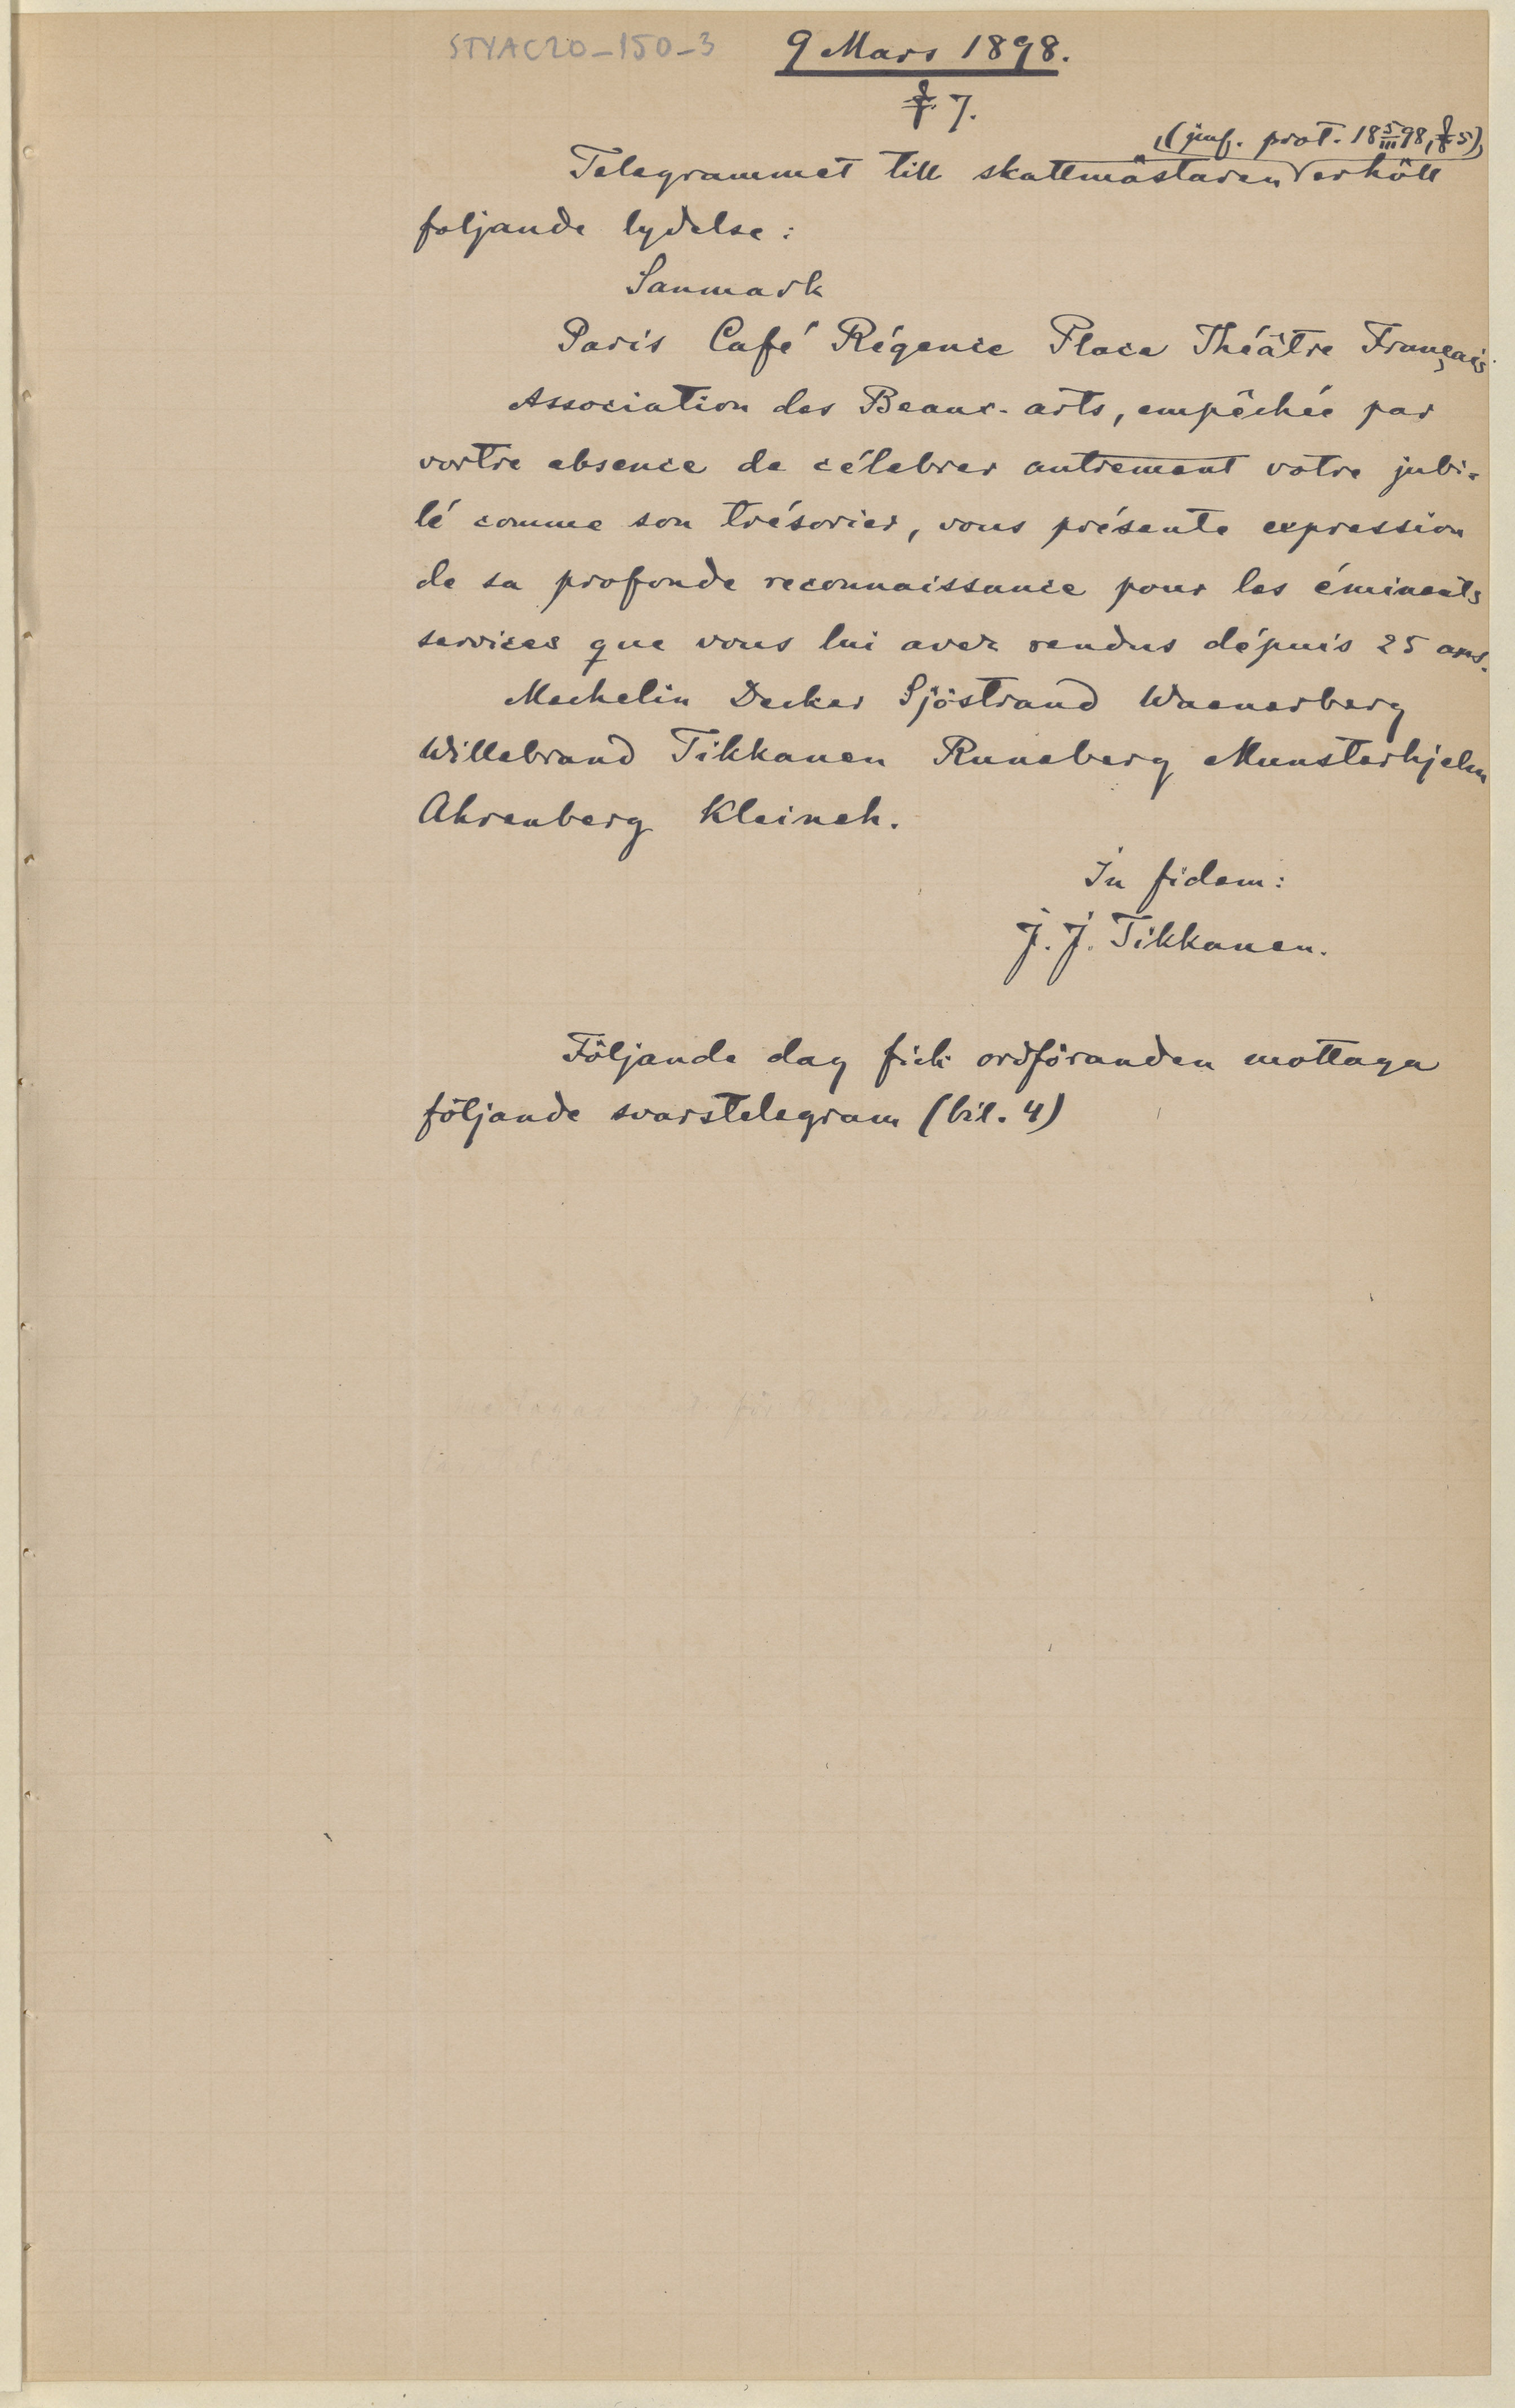 STYAC20_150_3
9 Mars 1898.
§ 7.
(jmf. prot. 18 5/III 98, § 5),
Telegrammet till skattmästaren erhöll
foljande lydelse:
Sanmark
Paris Café Régence Place Théâtre Français.
Association des Beaux-arts, empêchée par
vortre absence de célebrer autrement votre jubi-
lé comme son trésorier, vous présente expression
de sa profonde reconnaissance pour les éminents
services que vous lui avez rendus dépuis 25 ans.
Mechelin Decker Sjöstrand Waenerberg
Willebrand Tikkanen Runeberg Munsterhjelm
Ahrenberg Kleineh.
In fidem:
J. J. Tikkanen.
Följande dag fick ordföranden mottaga
följande svarstelegram (bil. 4)